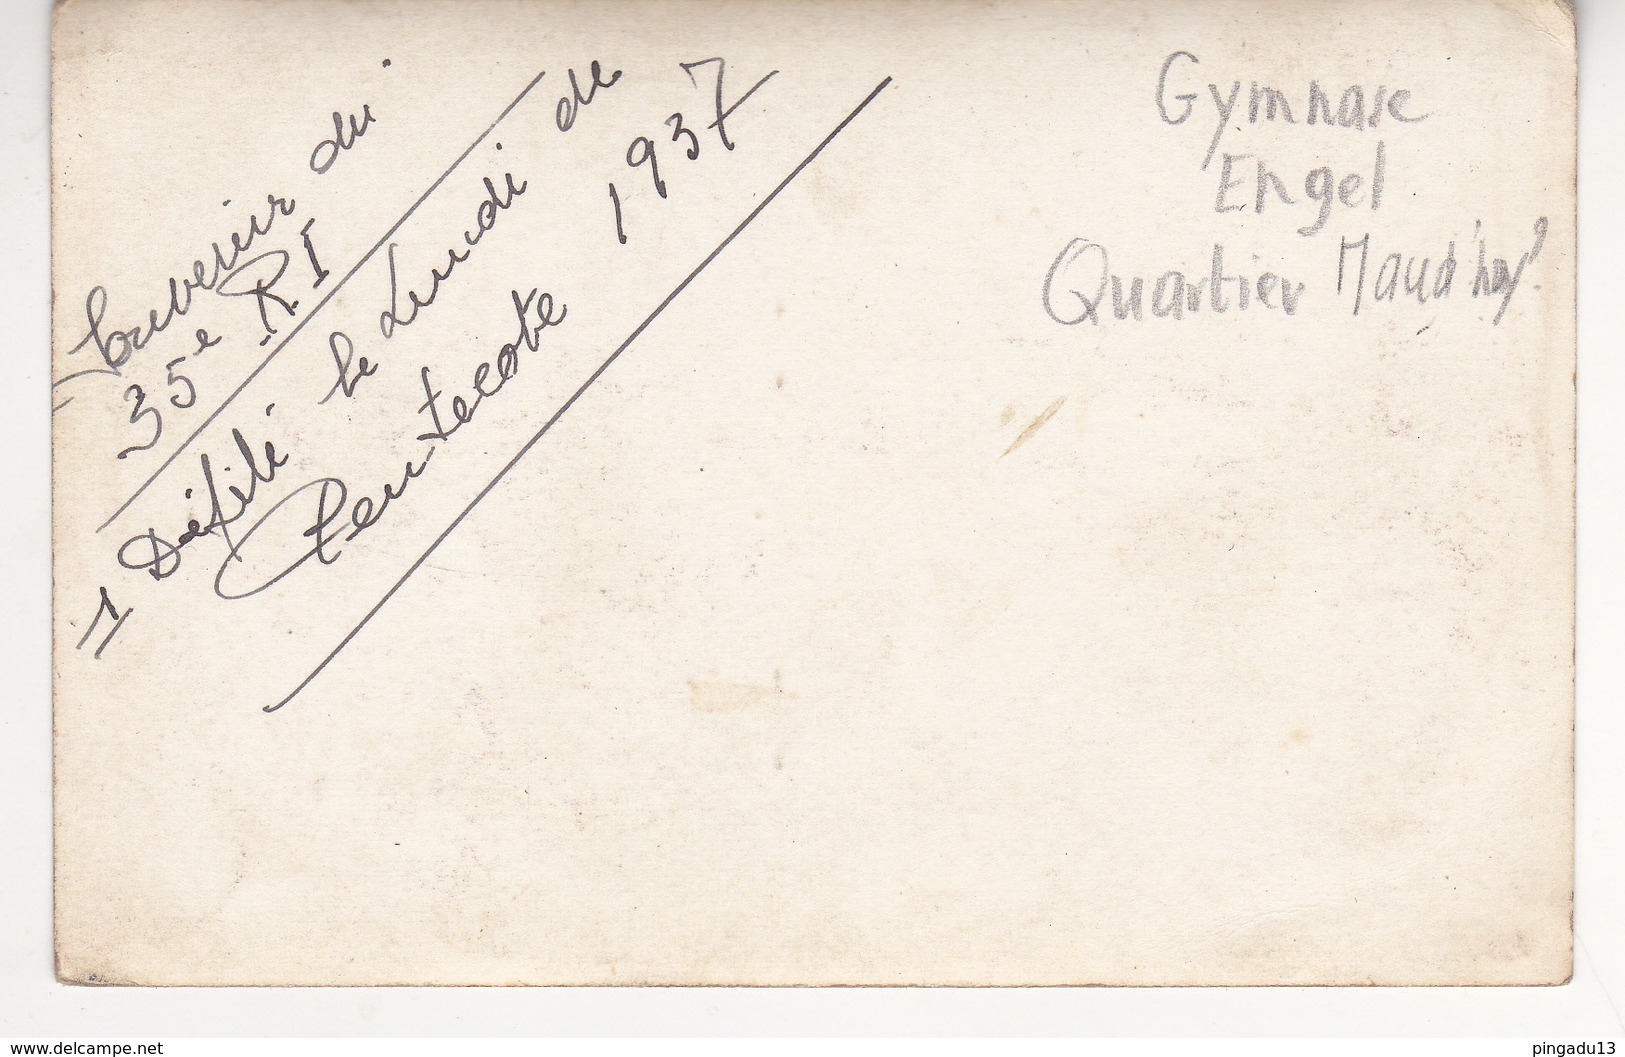 Souvenir du
35e R.I
1 Défilé le Lundi de
Pentecote 1937
Gymnase
Engel
Quartier Maud'huy?
www.delcampe.net
pingadu13